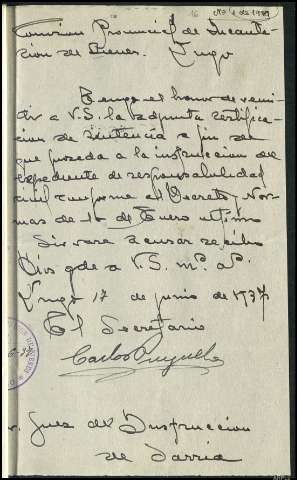 Comision Provincial de Incauta-
cion de Bienes. Lugo
Tengo el honor de remi-
tir a V.S. la adjunta certifica-
cion de sentencia a fin de
que proceda a la instruccion del
expediente de responsabilidad
civil conforme al Decreto y Nor-
mas de 10 de Enero ultimo
Sirvase acusar recibo
Dios gde a V.S. ms. as.
Lugo 17 de junio de 1937
El Secretario
Carlos
Sr. Juez de Instruccion
de Sarria